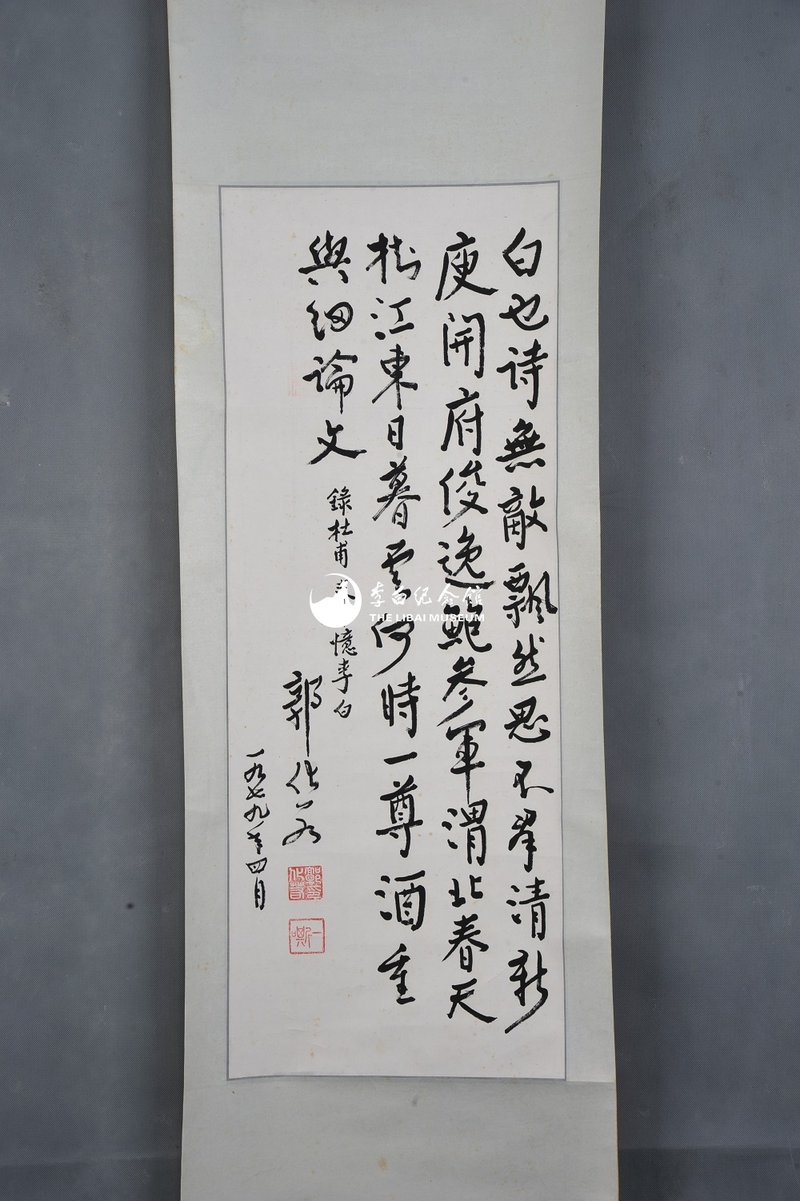 白也詩無敵飄然思不群清新
庾開府俊逸鮑參軍渭北春天
樹江東日暮雲何時一尊酒重
與細論文
錄杜甫 憶李白
郭化若
一九七九年四月
李白纪念馆
THE LIBAI MUSEUM